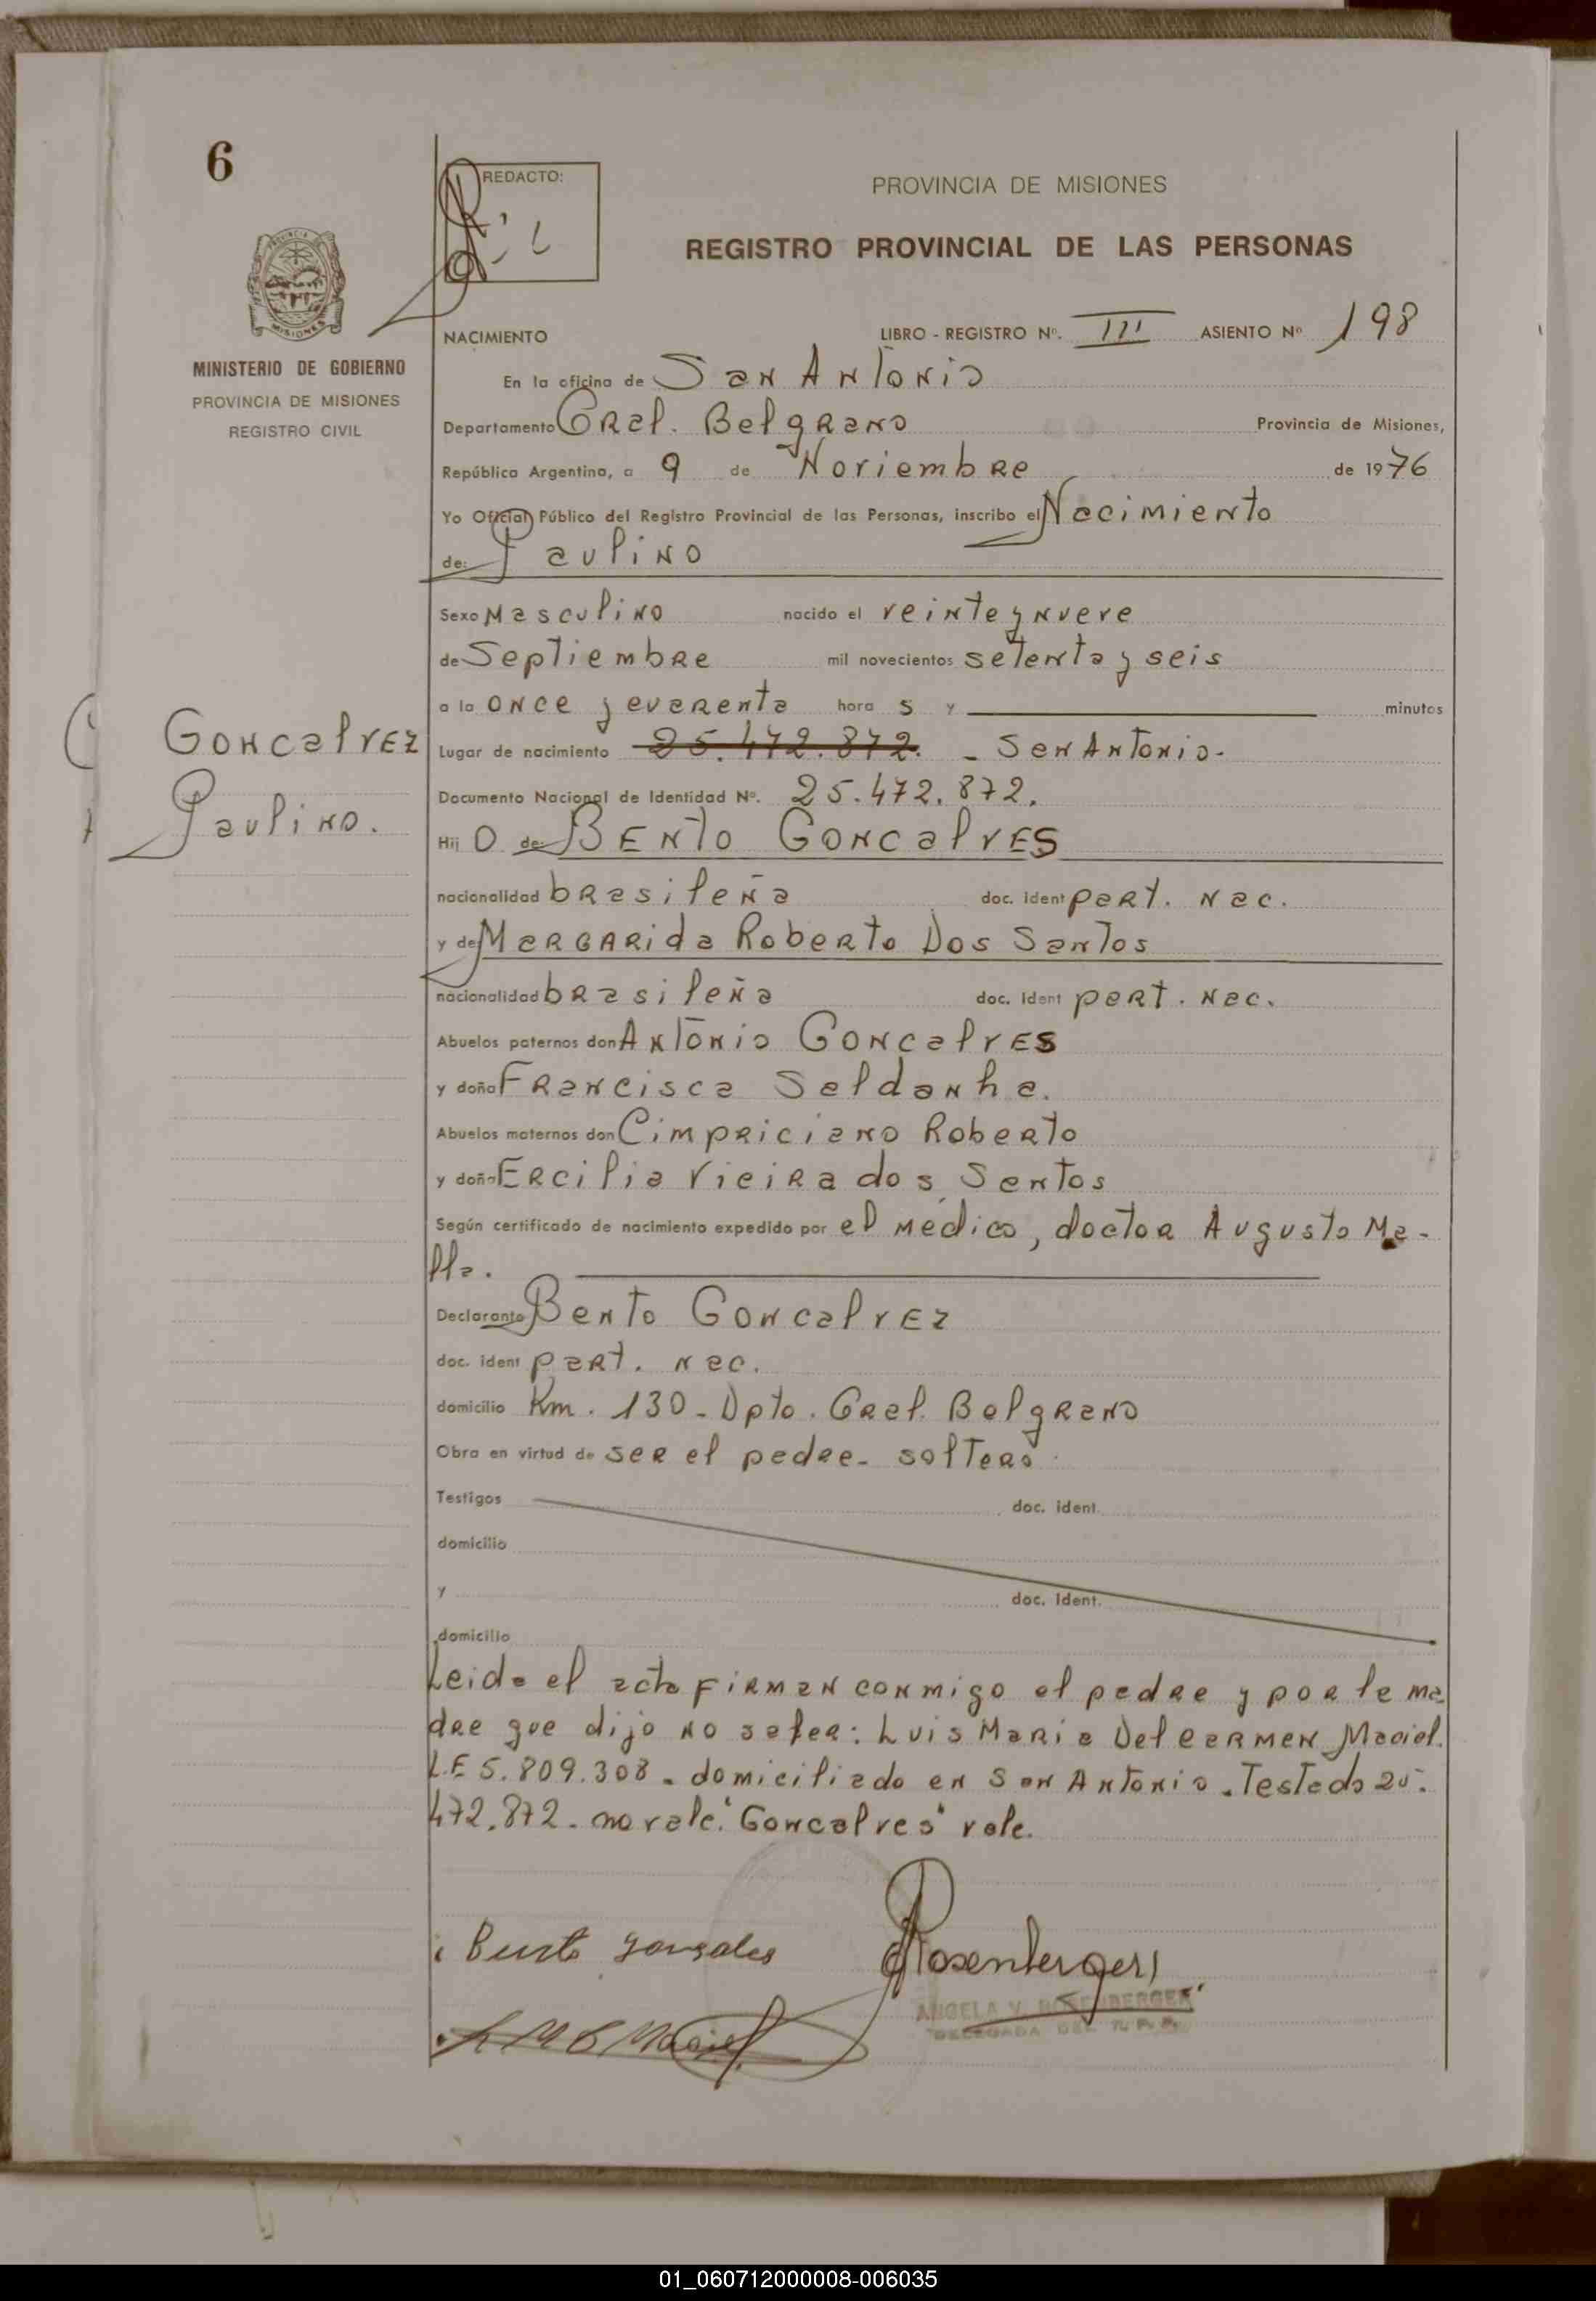 6
REDACTO:
PROVINCIA DE MISIONES
REGISTRO PROVINCIAL DE LAS PERSONAS
MISIONES
MINISTERIO DE GOBIERNO
PROVINCIA DE MISIONES
REGISTRO CIVIL
NACIMIENTO LIBRO - REGISTRO Nº. III ASIENTO Nº 198
En la oficina de San Antonio
Departamento Gral. Belgrano Provincia de Misiones,
República Argentina, a 9 de Noviembre de 1976
Yo Oficial Público del Registro Provincial de las Personas, inscribo el Nacimiento
de: Paulino
Sexo Masculino nacido el veinte y nueve
de Septiembre mil novecientos setenta y seis
a la once y cuarenta hora s y minutos
Goncalvez
Paulino.
Lugar de nacimiento 25.472.872. - San Antonio-
Documento Nacional de Identidad Nº. 25.472.872.
Hij o de: Bento Goncalves
nacionalidad brasileña doc. ident part. Nac.
y de Margarida Roberto Dos Santos
nacionalidad brasileña doc. ident part. Nac.
Abuelos paternos don Antonio Goncalves
y doña Francisca Saldanha.
Abuelos maternos don Cimpriciano Roberto
y doña Ercilia Vieira dos Santos
Según certificado de nacimiento expedido por el médico, doctor Augusto Ma-
lla.
Declarante Bento Goncalvez
doc. ident part. nac.
domicilio Km. 130 - Dpto. Gral. Belgrano
Obra en virtud de ser el padre - soltero.
Testigos doc. ident.
domicilio
y doc. ident.
domicilio
Leida el acta firman conmigo el padre y por la ma
dre que dijo no saber: Luis Maria Del Carmen Maciel.
L.E 5.809.308 - domiciliado en San Antonio. Testado 25.
472.872 - no vale. "Goncalves" vale.
Bento Gonsales
Rosenberger
ANGELA V. ROSENBERGER
DELEGADA DEL R.P.P.
L M C Maciel
01_060712000008-006035